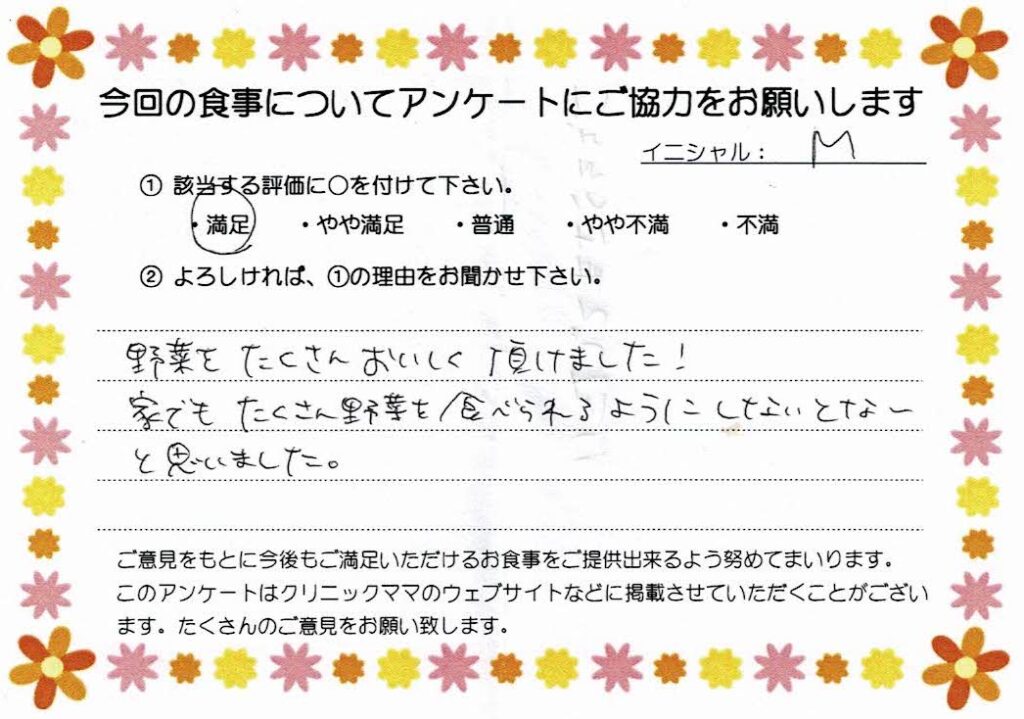 今回の食事についてアンケートにご協力をお願いします
イニシャル： M
① 該当する評価に○を付けて下さい。
・満足 ・やや満足 ・普通 ・やや不満 ・不満
② よろしければ、①の理由をお聞かせ下さい。
野菜を たくさん おいしく 頂けました！
家でも たくさん野菜を食べられるようにしないとなー
と思いました。
ご意見をもとに今後もご満足いただけるお食事をご提供出来るよう努めてまいります。
このアンケートはクリニックママのウェブサイトなどに掲載させていただくことがござい
ます。たくさんのご意見をお願い致します。